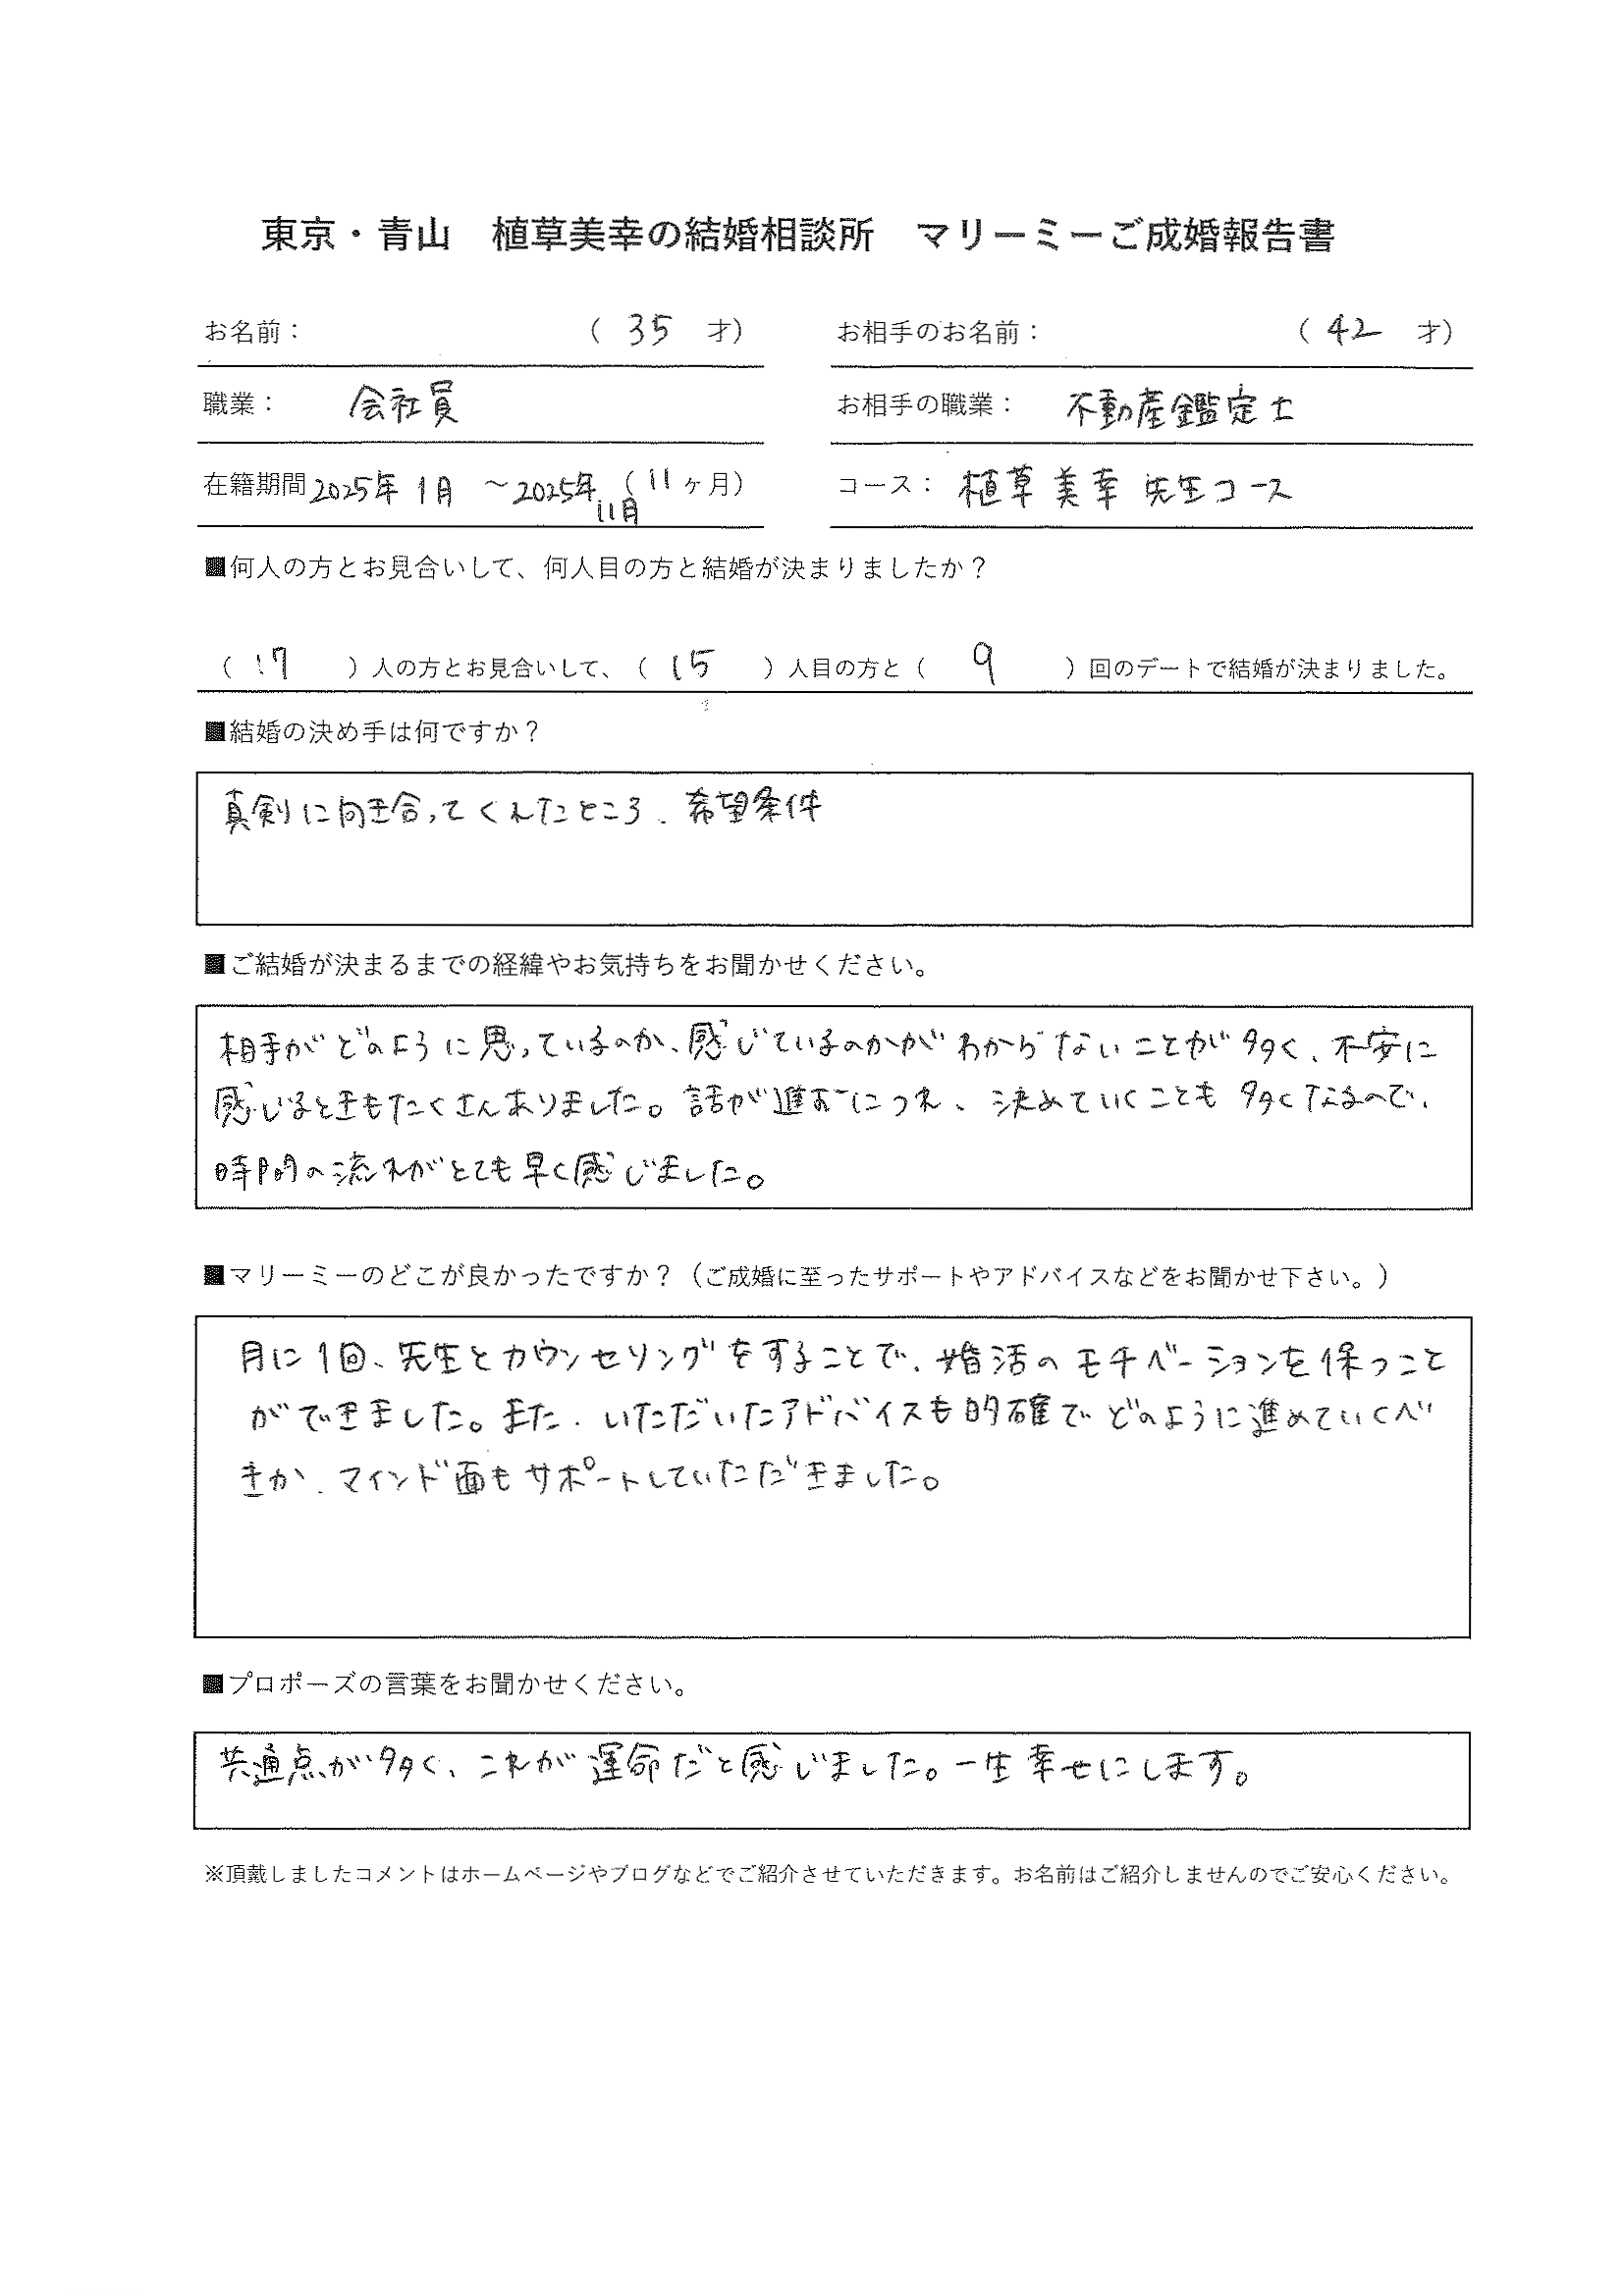 東京・青山　植草美幸の結婚相談所　マリーミーご成婚報告書
お名前：　（ 35 才）　お相手のお名前：　（ 42 才）
職業：　会社員　お相手の職業：　不動産鑑定士
在籍期間 2025年 1月 ～2025年 11月（11ヶ月）　コース：　植草美幸先生コース
■何人の方とお見合いして、何人目の方と結婚が決まりましたか？
（ 17 ）人の方とお見合いして、（ 15 ）人目の方と（ 9 ）回のデートで結婚が決まりました。
■結婚の決め手は何ですか？
真剣に向き合ってくれたところ、希望条件
■ご結婚が決まるまでの経緯やお気持ちをお聞かせください。
相手がどのように思っているのか、感じているのかがわからないことが多く、不安に
感じるときもたくさんありました。話が進むにつれ、決めていくことも多くなるので、
時間の流れがとても早く感じました。
■マリーミーのどこが良かったですか？（ご成婚に至ったサポートやアドバイスなどをお聞かせ下さい。）
月に1回、先生とカウンセリングをすることで、婚活のモチベーションを保つこと
ができました。また、いただいたアドバイスも的確でどのように進めていくべ
きか、マインド面もサポートしていただきました。
■プロポーズの言葉をお聞かせください。
共通点が多く、これが運命だと感じました。一生幸せにします。
※頂戴しましたコメントはホームページやブログなどでご紹介させていただきます。お名前はご紹介しませんのでご安心ください。